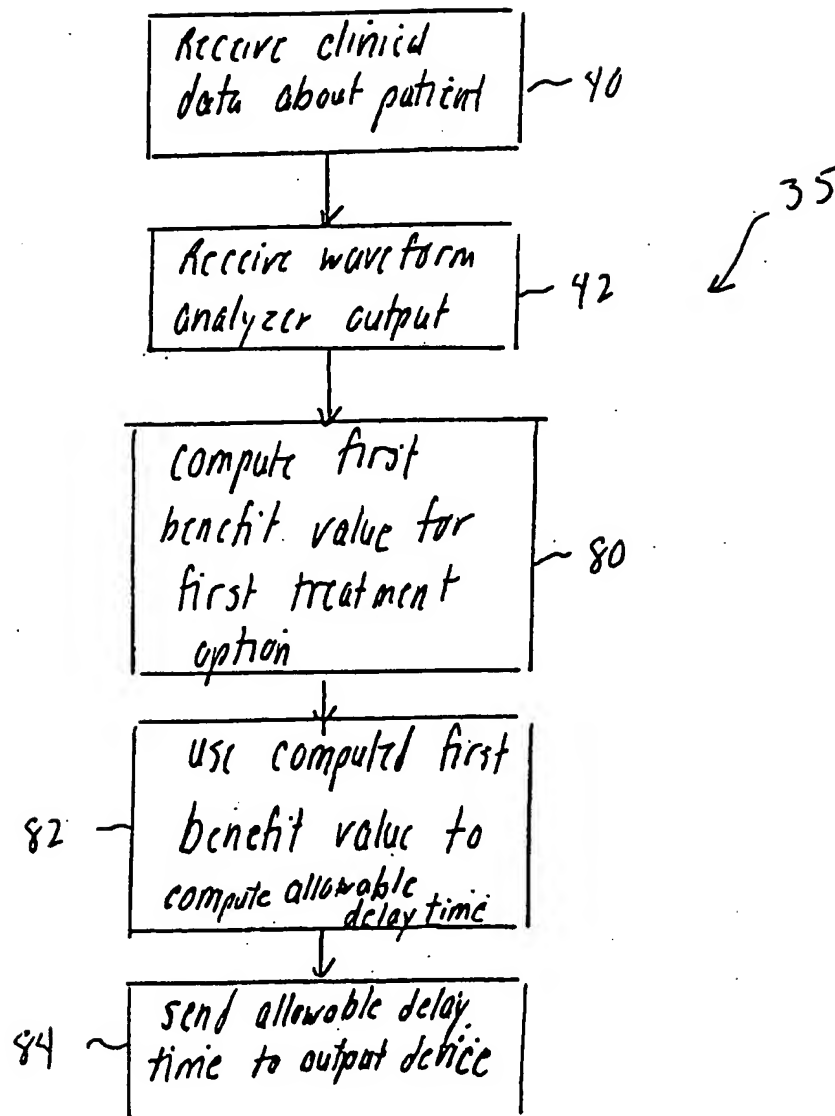 Receive clinical
data about patient
40
35
Receive waveform
analyzer output
42
compute first
benefit value for
first treatment
option
80
use computed first
benefit value to
compute allowable
delay time
82
send allowable delay
time to output device
84